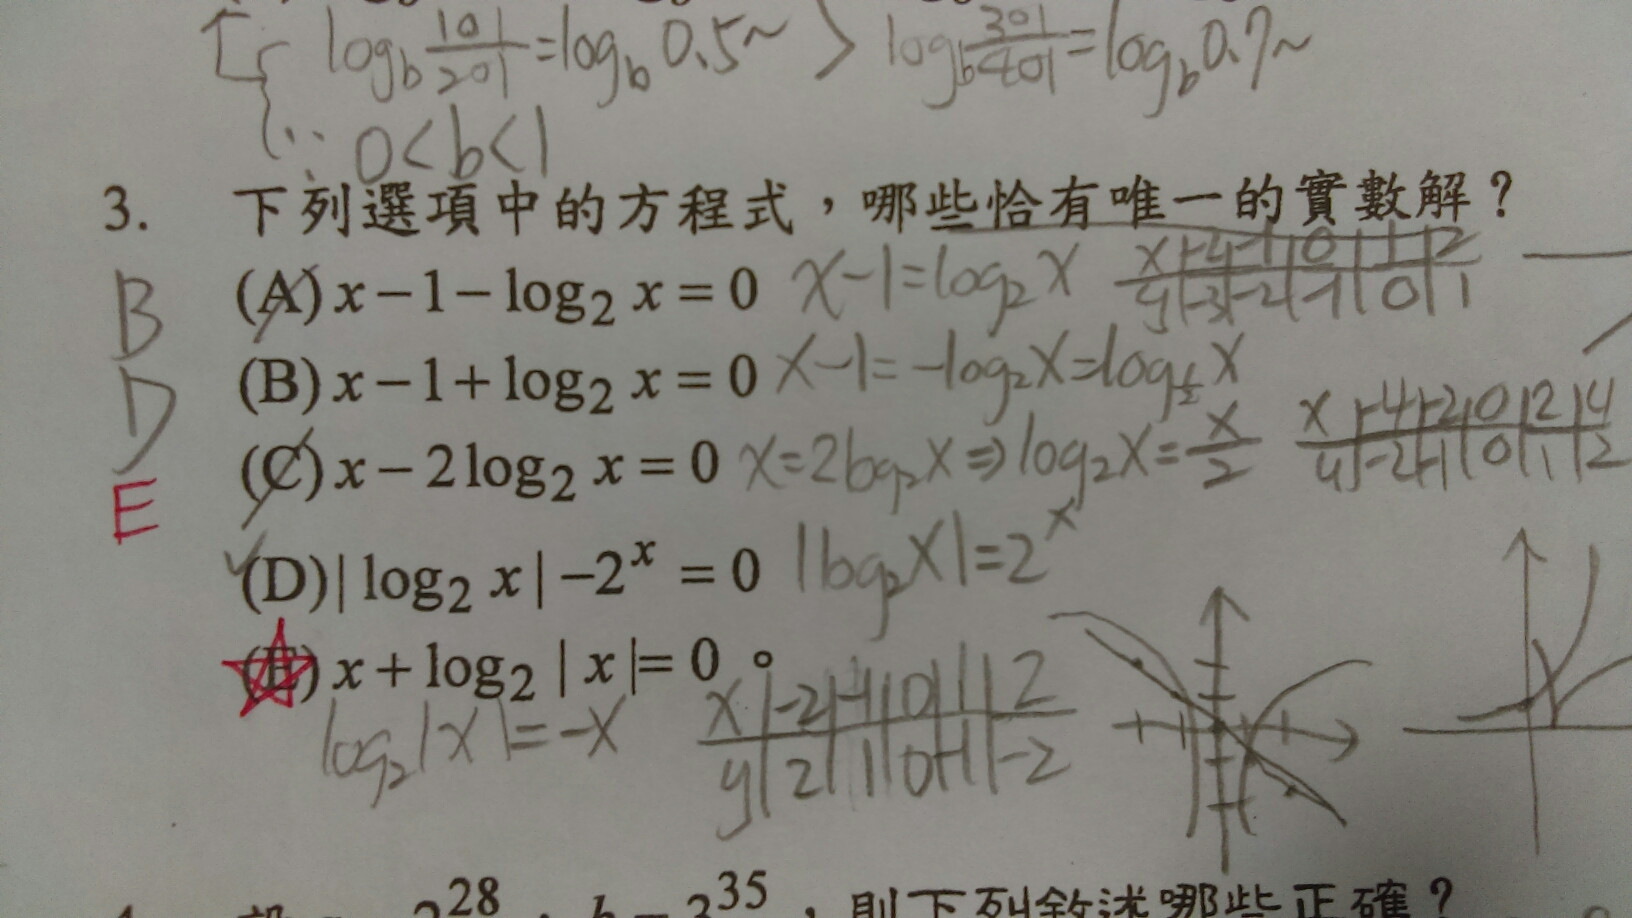 log_b 101/201 = log_b 0.5~ > log_b 301/401 = log_b 0.7~
∵ 0<b<1
3. 下列選項中的方程式，哪些恰有唯一的實數解？
(A) x−1−log₂ x = 0 x−1=log₂x x -2 -1 0 1 2
y -3 -2 -1 0 1
B
(B) x−1+log₂ x = 0 x−1=−log₂x=log_{1/2} x
D
(C) x−2log₂ x = 0 x=2log₂x ⇒ log₂x = x/2 x -4 -2 0 2 4
y -2 -1 0 1 2
E
(D) | log₂ x | −2ˣ = 0 |log₂x|=2ˣ
(E) x + log₂ | x |= 0。
log₂|x|=−x x -2 -1 0 1 2
y 2 1 0 -1 -2
28 35，則下列敘述哪些正確？